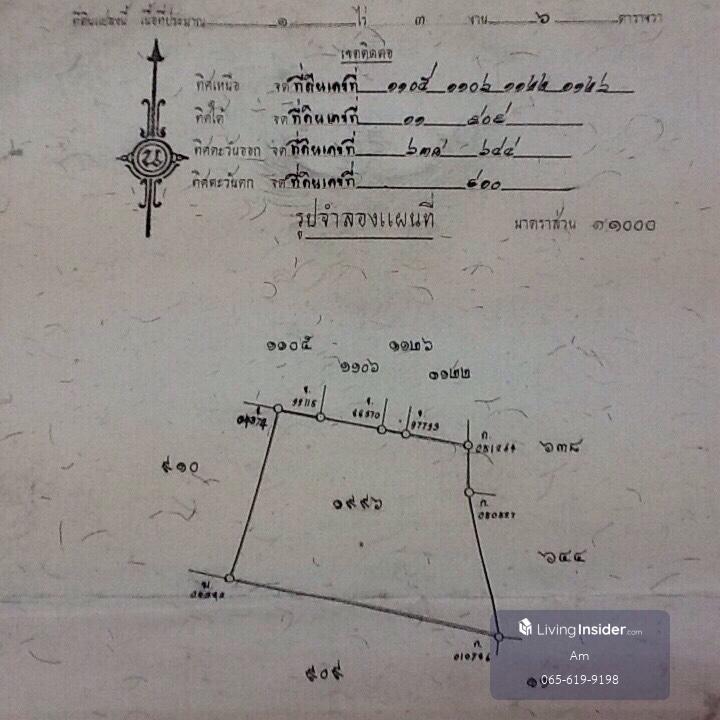 ที่ดินแปลงนี้ เนื้อที่ประมาณ ๑ ไร่ ๓ งาน ๖ ตารางวา
เขตติดต่อ
ทิศเหนือ จดที่ดินเลขที่ ๑๑๐๕ ๑๑๐๖ ๑๑๒๒ ๑๑๒๖
ทิศใต้ จดที่ดินเลขที่ ๑๑ ๙๐๙
ทิศตะวันออก จดที่ดินเลขที่ ๖๓๘ ๖๔๔
ทิศตะวันตก จดที่ดินเลขที่ ๙๑๐
น
รูปจำลองแผนที่
มาตราส่วน ๑:๑๐๐๐
๑๑๐๕ ๑๑๒๖
๑๑๐๖ ๑๑๒๒
๖๓๘
๙๑๐
๑๙๙๖
๖๔๔
LivingInsider.com
Am
065-619-9198
๙๐๙